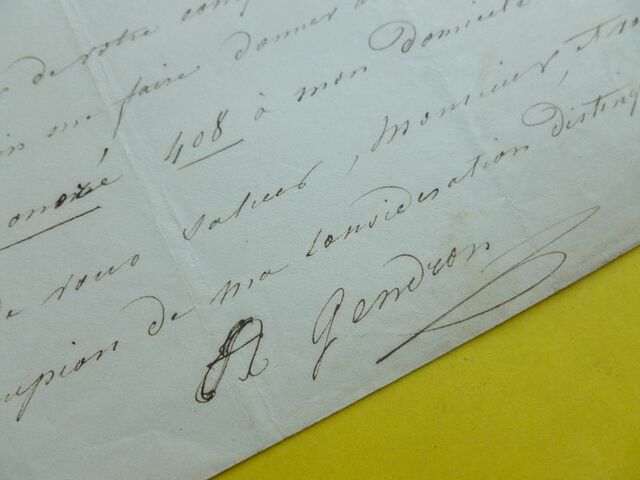 de votre
me faire donner
onoré 408 à mon domicile
de vous saluer, Monsieur, et
de ma considération disting
A Gendron